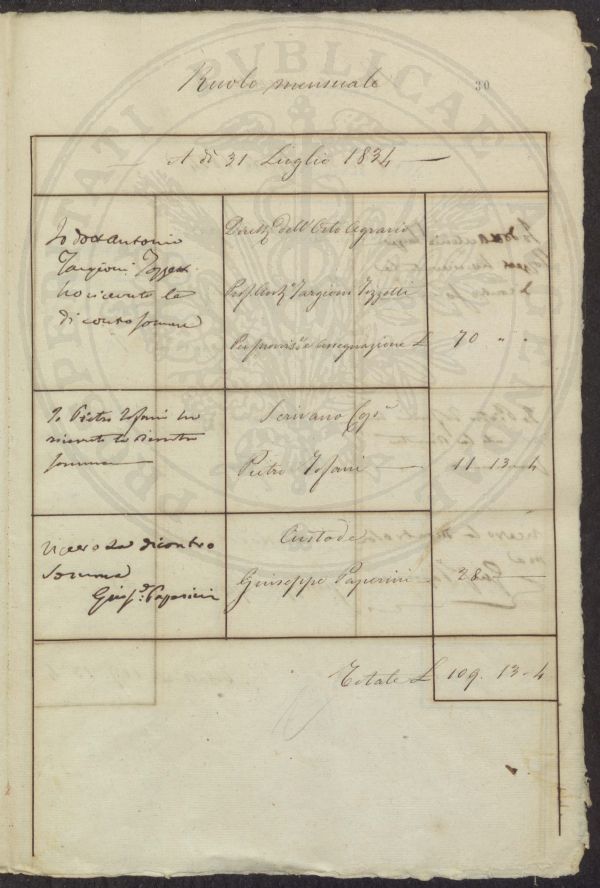 Ruolo mensuale
30
A dì 31 Luglio 1834
Io Dott Antonio
Targioni Tozzetti
ho ricevuto la
di contro somma
Dirett.e dell'Orto Agrario
Prof. Ant.o Targioni Tozzetti
Per provvis.e e assegnazione £ 70 " "
Io Pietro Tofani ho
ricevuto la di contro
somma
Scrivano Cop.e
Pietro Tofani — 11 - 13 - 4
ricevo La dicontro
Somma
Giusp.e Paperini
Custode
Giuseppe Paperini - 28 —
Totale £ 109. 13 - 4
PROSPERITATI PUBLICAE